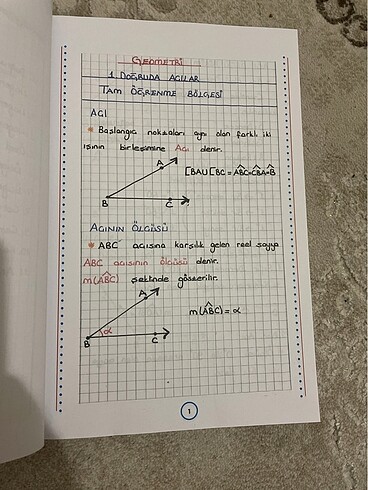 GEOMETRİ
1. DOĞRUDA AÇILAR
TAM ÖĞRENME BÖLGESİ
AÇI
* Başlangıç noktaları aynı olan farklı iki
ışının birleşimine Açı denir.
A
B
C
[BAU[BC = AB̂C=CB̂A=B̂
AÇININ ÖLÇÜSÜ
* ABC açısına karşılık gelen reel sayıya
ABC açısının ölçüsü denir.
m(AB̂C) şeklinde gösterilir.
A
B
α
C
m(AB̂C) = α
1